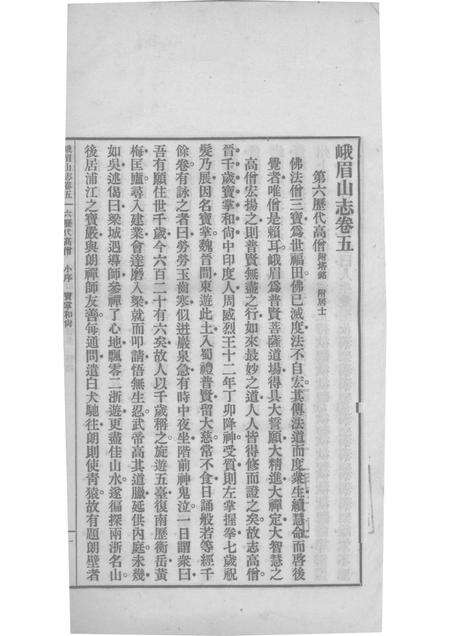 峨眉山志卷五
第六歷代高僧 附塔銘 附居士
佛法僧三寶爲世福田佛已滅度法不自宏其傳法道而度衆生續慧命而啓後
覺者唯僧是賴耳峨眉爲普賢菩薩道場得具大誓願大精進大禪定大智慧之
高僧宏揚之則普賢無盡之行如來最妙之道人人皆得修而證之矣故志高僧
晉千歲寶掌和尙中印度人周威烈王十二年丁卯降神受質則左掌握拳七歲祝
髮乃展因名寶掌魏晉間東遊此土入蜀禮普賢留大慈常不食日誦般若等經千
餘卷有詠之者曰勞勞玉齒寒似迸巖泉急有時中夜坐階前神鬼泣一日謂衆曰
吾有願住世千歲今六百二十有六矣故人以千歲稱之旋遊五臺復南歷衡岳黃
梅匡廬尋入建業會達磨入梁就而叩請悟無生忍武帝高其道臘延供內庭未幾
如吳述偈曰梁城遇導師參禪了心地飄零二浙遊更盡佳山水遂徧探兩浙名山
後居浦江之寶嚴與朗禪師友善每通問遣白犬馳往朗則使靑猿故有題朗壁者
峨眉山志卷五 六歷代高僧 小序 寶掌和尙 一